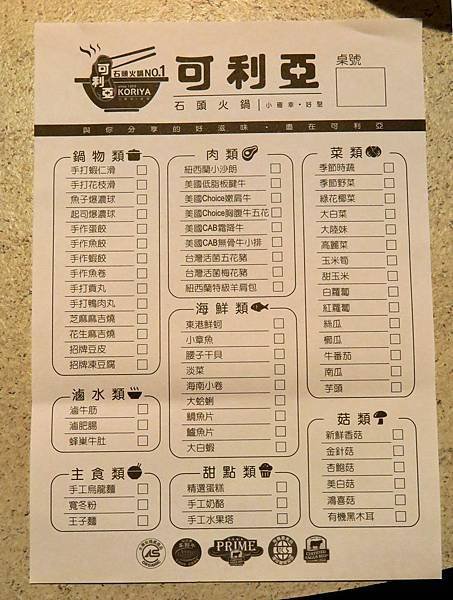 石頭火鍋NO.1
可利亞
SINCE 1979
KORIYA
可利亞
石頭火鍋
桌號
與你分享的好滋味,盡在可利亞
鍋物類
手打蝦仁滑
手打花枝滑
魚子爆濃球
起司爆濃球
手作蛋餃
手作魚餃
手作蝦餃
手作魚卷
手打貢丸
手打鴨肉丸
芝麻麻吉燒
花生麻吉燒
招牌豆皮
招牌凍豆腐
滷水類
滷牛筋
滷肥腸
蜂巢牛肚
主食類
手工烏龍麵
寬冬粉
王子麵
肉類
紐西蘭小沙朗
美國低脂板腱牛
美國Choice嫩肩牛
美國Choice胸腹牛五花
美國CAB霜降牛
美國CAB無骨牛小排
台灣活菌五花豬
台灣活菌梅花豬
紐西蘭特級羊肩包
海鮮類
東港鮮蚵
小章魚
腰子干貝
淡菜
海南小卷
大蛤蜊
鯛魚片
鱸魚片
大白蝦
甜點類
精選蛋糕
手工奶酪
手工水果塔
菜類
季節時蔬
季節野菜
綠花椰菜
大白菜
大陸妹
高麗菜
玉米筍
甜玉米
白蘿蔔
紅蘿蔔
絲瓜
櫛瓜
牛番茄
南瓜
芋頭
菇類
新鮮香菇
金針菇
杏鮑菇
美白菇
鴻喜菇
有機黑木耳
PRIME